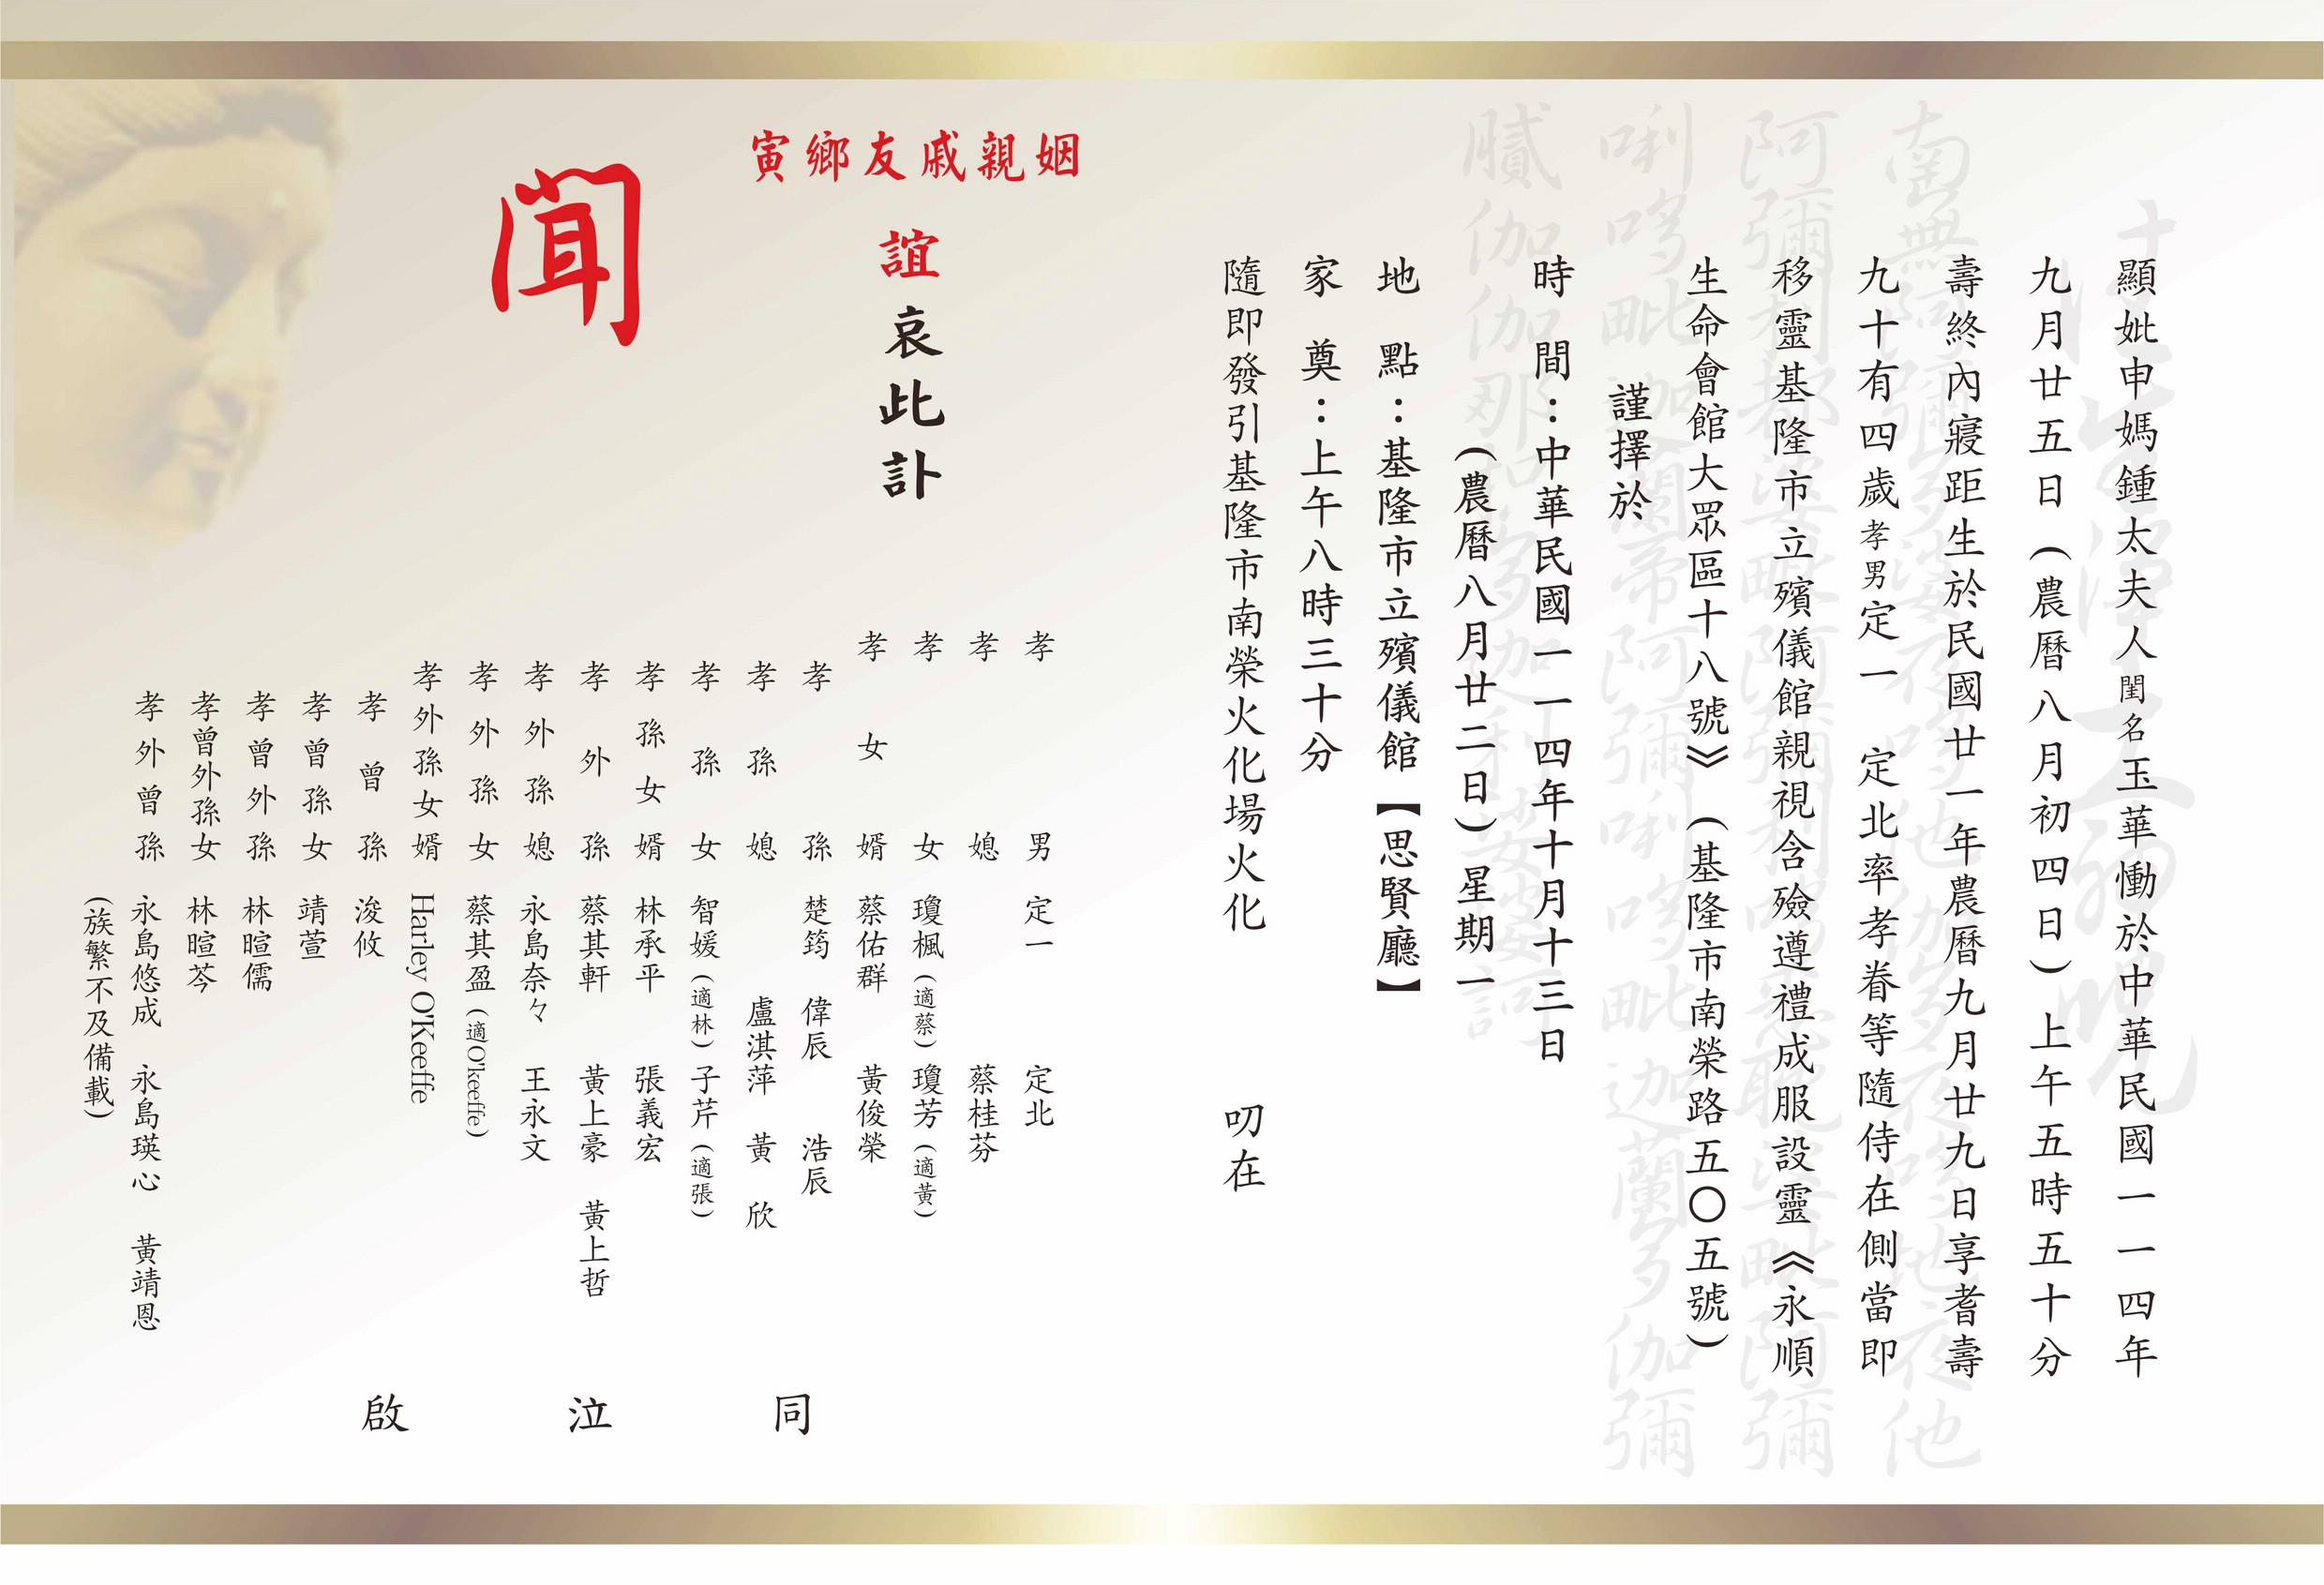 顯妣申媽鍾太夫人閨名玉華慟於中華民國一一四年
九月廿五日（農曆八月初四日）上午五時五十分
壽終內寢距生於民國廿一年農曆九月廿九日享耆壽
九十有四歲孝男定一　定北率孝眷等隨侍在側當即
移靈基隆市立殯儀館親視含殮遵禮成服設靈《永順
生命會館大眾區十八號》（基隆市南榮路五〇五號）
謹擇於
時　間：中華民國一一四年十月十三日
（農曆八月廿二日）星期一
地　點：基隆市立殯儀館【思賢廳】
家　奠：上午八時三十分
隨即發引基隆市南榮火化場火化　叨在
姻親戚友鄉寅
誼哀此訃
聞
孝男　定一　定北
孝媳　蔡桂芬
孝女　瓊楓（適蔡）　瓊芳（適黃）
孝女婿　蔡佑群　黃俊榮
孝孫　楚筠　偉辰　浩辰
孝孫媳　盧淇萍　黃欣
孝孫女　智媛（適林）　子芹（適張）
孝孫女婿　林承平　張義宏
孝外孫　蔡其軒　黃上豪　黃上哲
孝外孫媳　永島奈々　王永文
孝外孫女　蔡其盈（適O'keeffe）
孝外孫女婿　Harley O'Keeffe
孝曾孫　浚攸
孝曾孫女　靖萱
孝曾外孫　林暄儒
孝曾外孫女　林暄芩
孝外曾孫　永島悠成　永島瑛心　黃靖恩
（族繁不及備載）
同泣啟